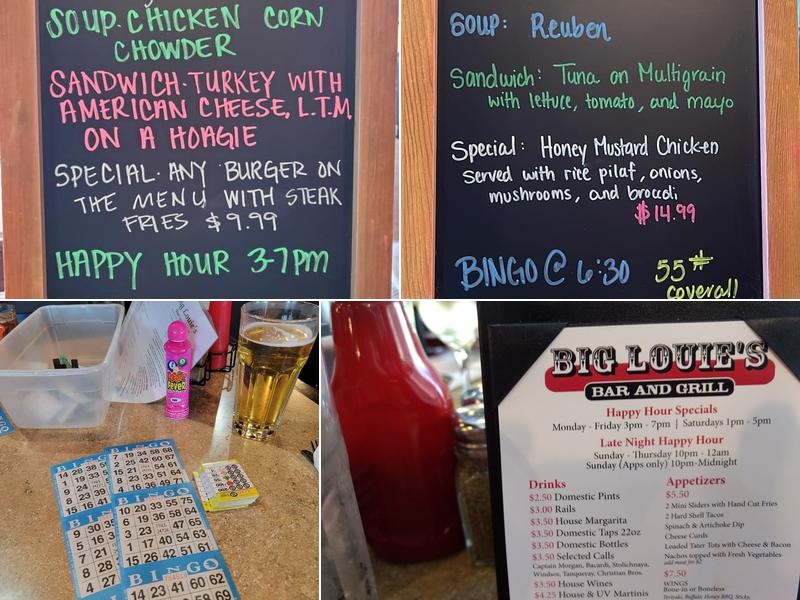 SOUP. CHICKEN CORN
CHOWDER
SANDWICH. TURKEY WITH
AMERICAN CHEESE, L.T.M.
ON A HOAGIE
SPECIAL. ANY BURGER ON
THE MENU WITH STEAK
FRIES $9.99
HAPPY HOUR 3-7PM
SOUP: Reuben
Sandwich: Tuna on Multigrain
with lettuce, tomato, and mayo
Special: Honey Mustard Chicken
Served with rice pilaf, onions,
mushrooms, and brocoli
$14.99
BINGO @ 6:30 55#
coverall
Louie's
FEVER
BINGO
7 19 34 58 68
BINGO
10 20 33 55 75
3 19 36 58 64
8 23 FREE 47 65
1 17 40 54 63
15 26 42 51 61
BINGO
14 23 41 60 62
BIG LOUIE'S
BAR AND GRILL
Happy Hour Specials
Monday - Friday 3pm - 7pm | Saturdays 1pm - 5pm
Late Night Happy Hour
Sunday - Thursday 10pm - 12am
Sunday (Apps only) 10pm-Midnight
Drinks
$2.50 Domestic Pints
$3.00 Rails
$3.50 House Margarita
$3.50 Domestic Taps 22oz
$3.50 Domestic Bottles
$3.50 Selected Calls
Captain Morgan, Bacardi, Stolichnaya,
Windsor, Tanqueray, Christian Bros.
$3.50 House Wines
$4.25 House & UV Martinis
Appetizers
$5.50
2 Mini Sliders with Hand Cut Fries
2 Hard Shell Tacos
Spinach & Artichoke Dip
Cheese Curds
Loaded Tater Tots with Cheese & Bacon
Nachos topped with Fresh Vegetables
add meat for $2
$7.50
WINGS
Bone-in or Boneless
Teriyaki, Buffalo, Honey BBQ, Sticky,